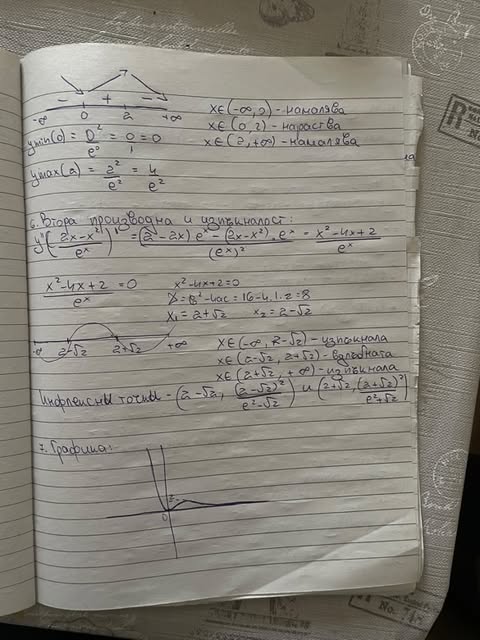 - + -
-∞ 0 2 +∞
x∈(-∞, 0) - намалява
x∈(0, 2) - нараства
x∈(2, +∞) - намалява
ymin(0) = 0²/e⁰ = 0/1 = 0
ymax(2) = 2²/e² = 4/e²
6. Втора производна и изпъкналост:
y''(2x-x²/eˣ)' = (2-2x)eˣ - (2x-x²).eˣ/(eˣ)² = x²-4x+2/eˣ
x²-4x+2/eˣ = 0
x²-4x+2=0
D = b²-4ac = 16-4.1.2 = 8
x₁ = 2+√2 x₂ = 2-√2
-∞ 2-√2 2+√2 +∞
x∈(-∞, 2-√2) - изпъкнала
x∈(2-√2, 2+√2) - вдлъбната
x∈(2+√2, +∞) - изпъкнала
Инфлексни точки - (2-√2, (2-√2)²/e²-√2) и (2+√2, (2+√2)²/e²+√2)
7. Графика:
0